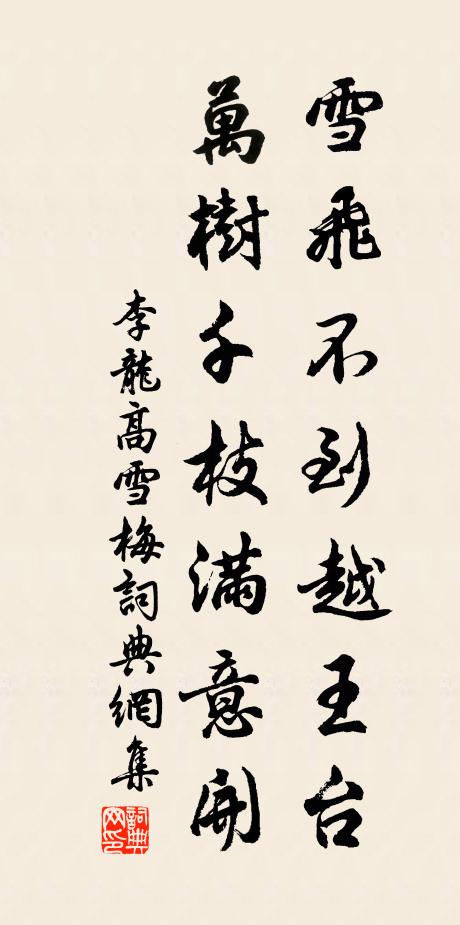 雪飛不到越王台
萬樹千枝滿意開
李龍高雪梅詞典網集
詞典網印